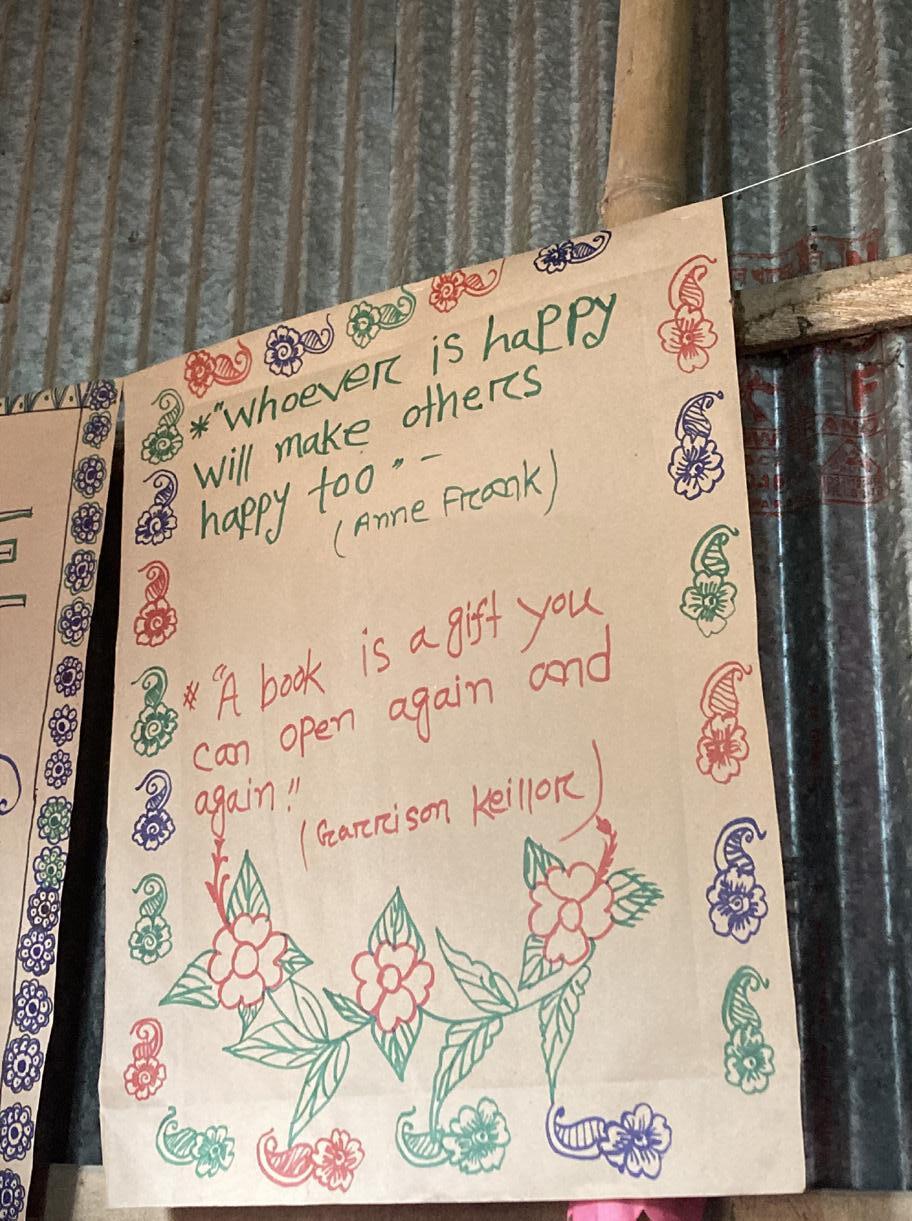 *"Whoever is happy
will make others
happy too" -
(Anne Frank)
* "A book is a gift you
can open again and
again."
(Garrison Keillor)